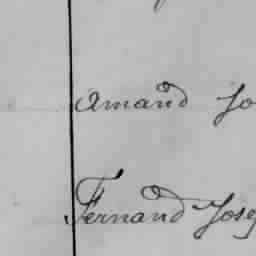 Amand Jo
Fernand Jose